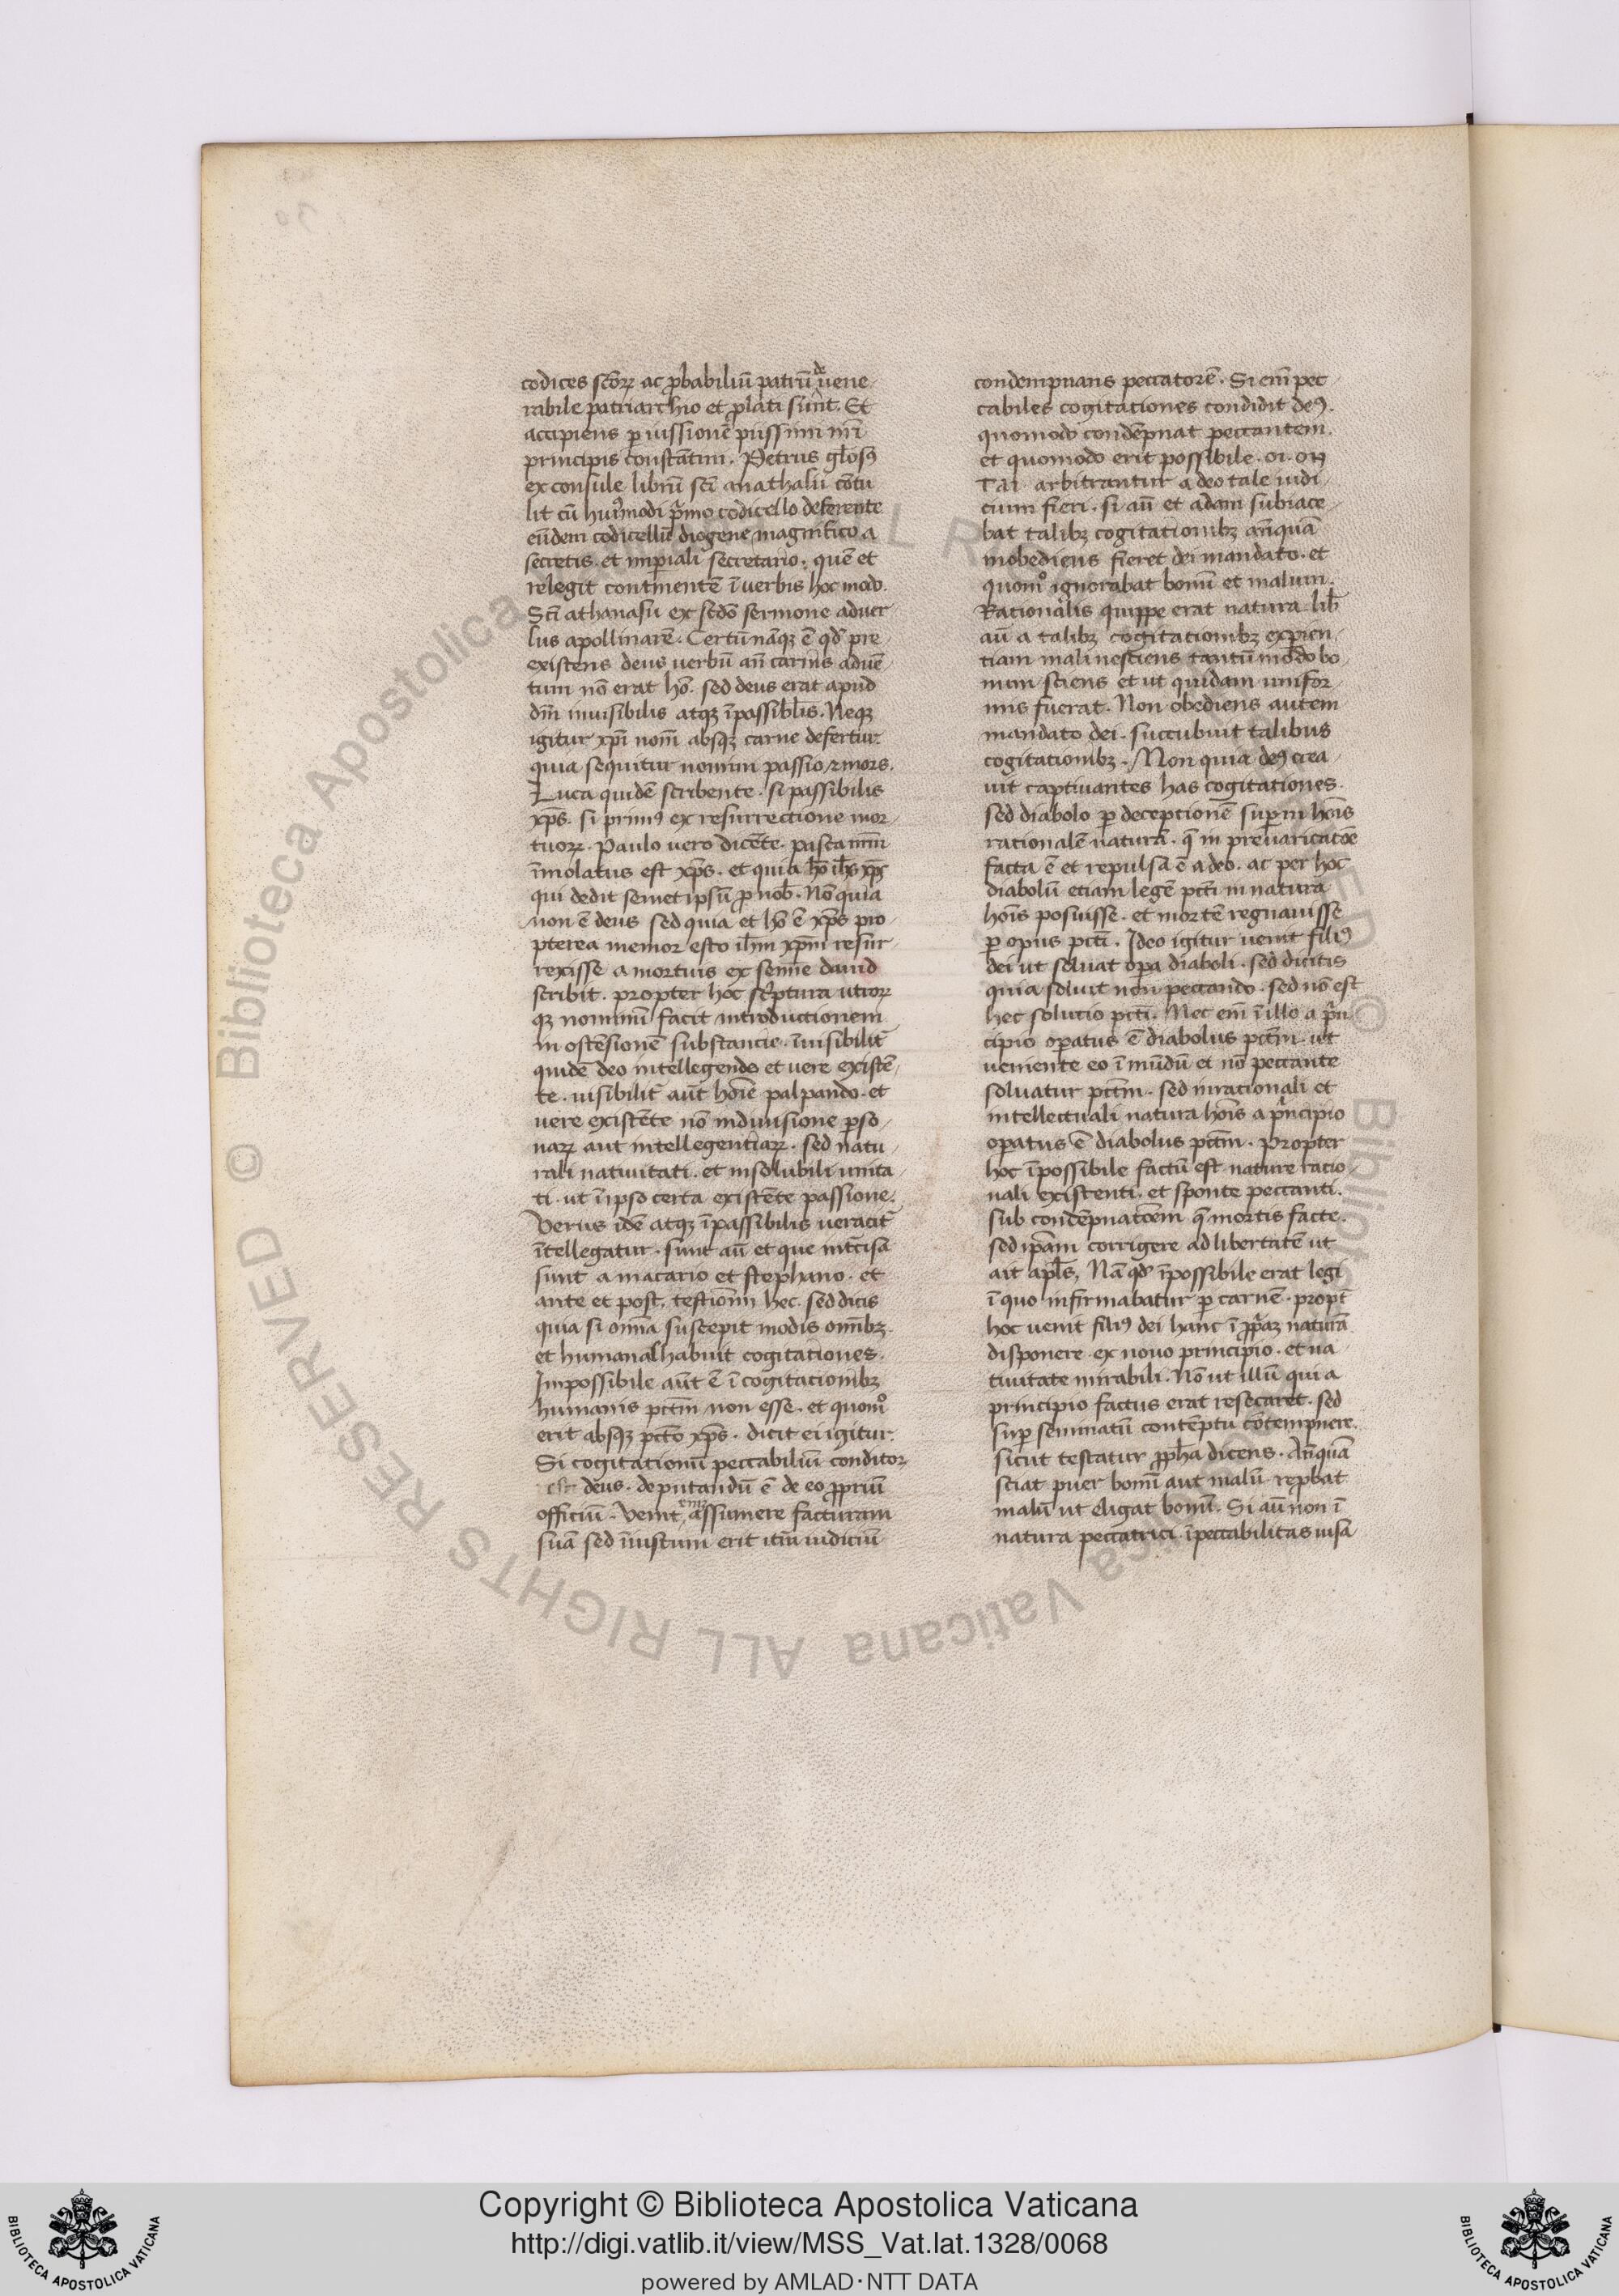 codices sc̄orꝝ ac ꝓbabiliū patrū de vene-
rabile patriarchio et ꝓlati sūnt. Et
accipiens ꝑ iussionē piissimi nr̄i
principis constātini. Petrus glōsꝫ
ex consule librū scī anathasii cōtu
lit cū huiꝰmodi pͥmo codicello deferente
eūdem codicellū diogene magnifico a
secretis. et imperiali secretario. quē et
relegit continentē ī verbis hoc modo.
Scī athanasii ex scdō sermone aduer-
sus apollinarē. Certū nāqꝫ ē qd̄ pre-
existens deus uerbū an̄ carnis aduē-
tum nō erat hō. sed deus erat apud
dm̄ inuisibilis atqꝫ īpassibl̄is. Neqꝫ
igitur xp̄i nom̄ absqꝫ carne defertur
quia sequitur nomini passio ⁊ mors.
Luca quidē scribente. si passibilis
xp̄s. si primꝰ ex resurrectione mor-
tuorꝝ. Paulo uero dicēte. pasca nr̄m
īmolatus est xp̄s. et quia hō ih̄s xp̄s
qui dedit semetipsū ꝓ nob̄. Nō quia
non ē deus sed quia et hō ē xp̄s pro-
pterea memor esto ih̄m xp̄m resur-
rexisse a mortuis ex semīe dauid
scribit. propter hoc scͥptura utrorꝝ
qꝫ nominū facit introductionem
in ostēsionē substancie. īuisibilit̄
quidē deo intellegendo et uere existē-
te. uisibilit̄ aūt hoīe palpando. et
uere existēte nō in diuisione ꝑso-
narꝝ aut intellegentiarꝝ. sed natu-
rali natiuitati. et insolubili unita-
ti. ut ī ipso certa existēte passione.
Verus idē atqꝫ īpassibilis ueracit̄
ītellegatur. sunt aū et que int̄cisa
sunt a macario et stephano. et
ante et post. testiōnii hec. sed dicis
quia si om̄a suscepit modis om̄ibꝫ.
et humanas habuit cogitationes.
Impossibile aūt ē ī cogitacionibꝫ
humanis pctm̄ non esse. et quomͦ
erit absqꝫ pctō xp̄s. dicit ei igitur.
Si cogitationū peccabiliū conditor
est deus. deputandū ē de eo ꝓpriū
officiū. Venit eniꝫ assumere facturam
suā sed īiustum erit itm̄ iudiciū
condempnans peccatorē. Si enī pec-
cabiles cogitaciones condidit deꝰ.
quomodo condēpnat peccantem.
et quomodo erit possibile. oi. on
Tai. arbitrantur a deo tale iudi-
cium fieri. si aū et adam subiace-
bat talibꝫ cogitationibꝫ an̄quā
inobediens fieret dei mandato. et
quomͦ ignorabat bonū et malum.
Rationalis quippe erat natura lib̄
aū a talibꝫ cogitationibꝫ exꝑien-
tiam mali nesciens tantūmodo bo-
num sciens et ut quidam unifor-
mis fuerat. Non obediens autem
mandato dei. succubuit talibus
cogitationibꝫ. Non quia deꝰ crea-
uit captiuantes has cogitationes.
sed diabolo ꝑ deceptionē suꝑ in hoīs
rationalē naturā. q̄ in preuaricatōe
facta ē et repulsa ē a deo. ac per hoc
diabolū etiam legē pctī in natura
hoīs posuisse. et mortē regnauisse
ꝑ opus pctī. Ideo igitur uenit filiꝰ
dei ut soluat oꝑa diaboli. sed dicitis
quia soluit non peccando. sed nō est
hec solucio pctī. Nec enī ī illo a pͥn
cipio oꝑatus ē diabolus pctm̄. ut
ueniente eo ī mūdū et nō peccante
soluatur pctm̄. sed in racionali et
intellectuali natura hoīs a pͥncipio
oꝑatus ē diabolus pctm̄. Propter
hoc īpossibile factū est nature racio-
nali existenti. et sponte peccanti.
sub condēpnatōem q̄ mortis facte.
sed ipām corrigere ad libertatē ut
ait apl̄s. Nā qd̄ īpossibile erat legi
ī quo infirmabatur ꝑ carnē. propt̄
hoc uenit filiꝰ dei hanc ī ꝓpͥaꝫ naturā
disponere. ex nouo principio. et na-
tiuitate mirabili. Nō ut illū qui a
principio factus erat resecaret. sed
suꝑ seminatū contēptu cōtempnere.
sicut testatur ꝓph̄a dicens. An̄quā
sciat puer bonū aut malū reꝓbat
malū ut eligat bonū. Si aū non ī
natura peccatrici īpeccabilitas uisa
Copyright © Biblioteca Apostolica Vaticana
http://digi.vatlib.it/view/MSS_Vat.lat.1328/0068
powered by AMLAD·NTT DATA
BIBLIOTECA APOSTOLICA VATICANA
BIBLIOTECA APOSTOLICA VATICANA
© Biblioteca Apostolica Vaticana ALL RIGHTS RESERVED